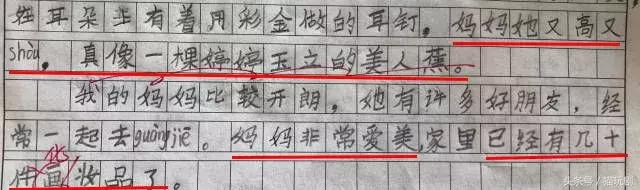 娃耳朵上有着用彩金做的耳钉。妈妈她又高又
shòu。真像一棵婷婷玉立的美人蕉。
我的妈妈比较开朗，她有许多好朋友，经
常一起去guàngjiē。妈妈非常爱美，家里已经有几十
化
件画妆品了。
头条号/猫玩剧